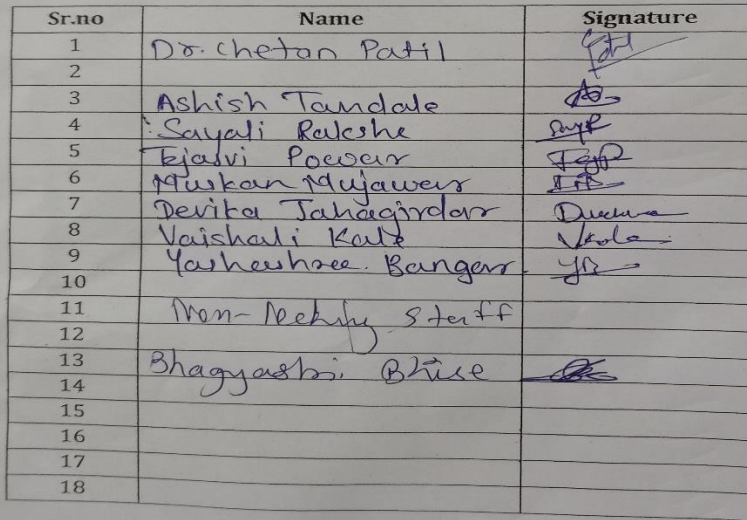 Sr.no Name Signature
1 Dr. Chetan Patil
2
3 Ashish Tandale
4 Sayali Rakshe
5 Tejasvi Powar
6 Muskan Mujawar
7 Devika Jahagirdar
8 Vaishali Kale
9 Yasheshree. Bangar
10
11 Non-Teching Staff
12
13 Bhagyashri Bhise
14
15
16
17
18